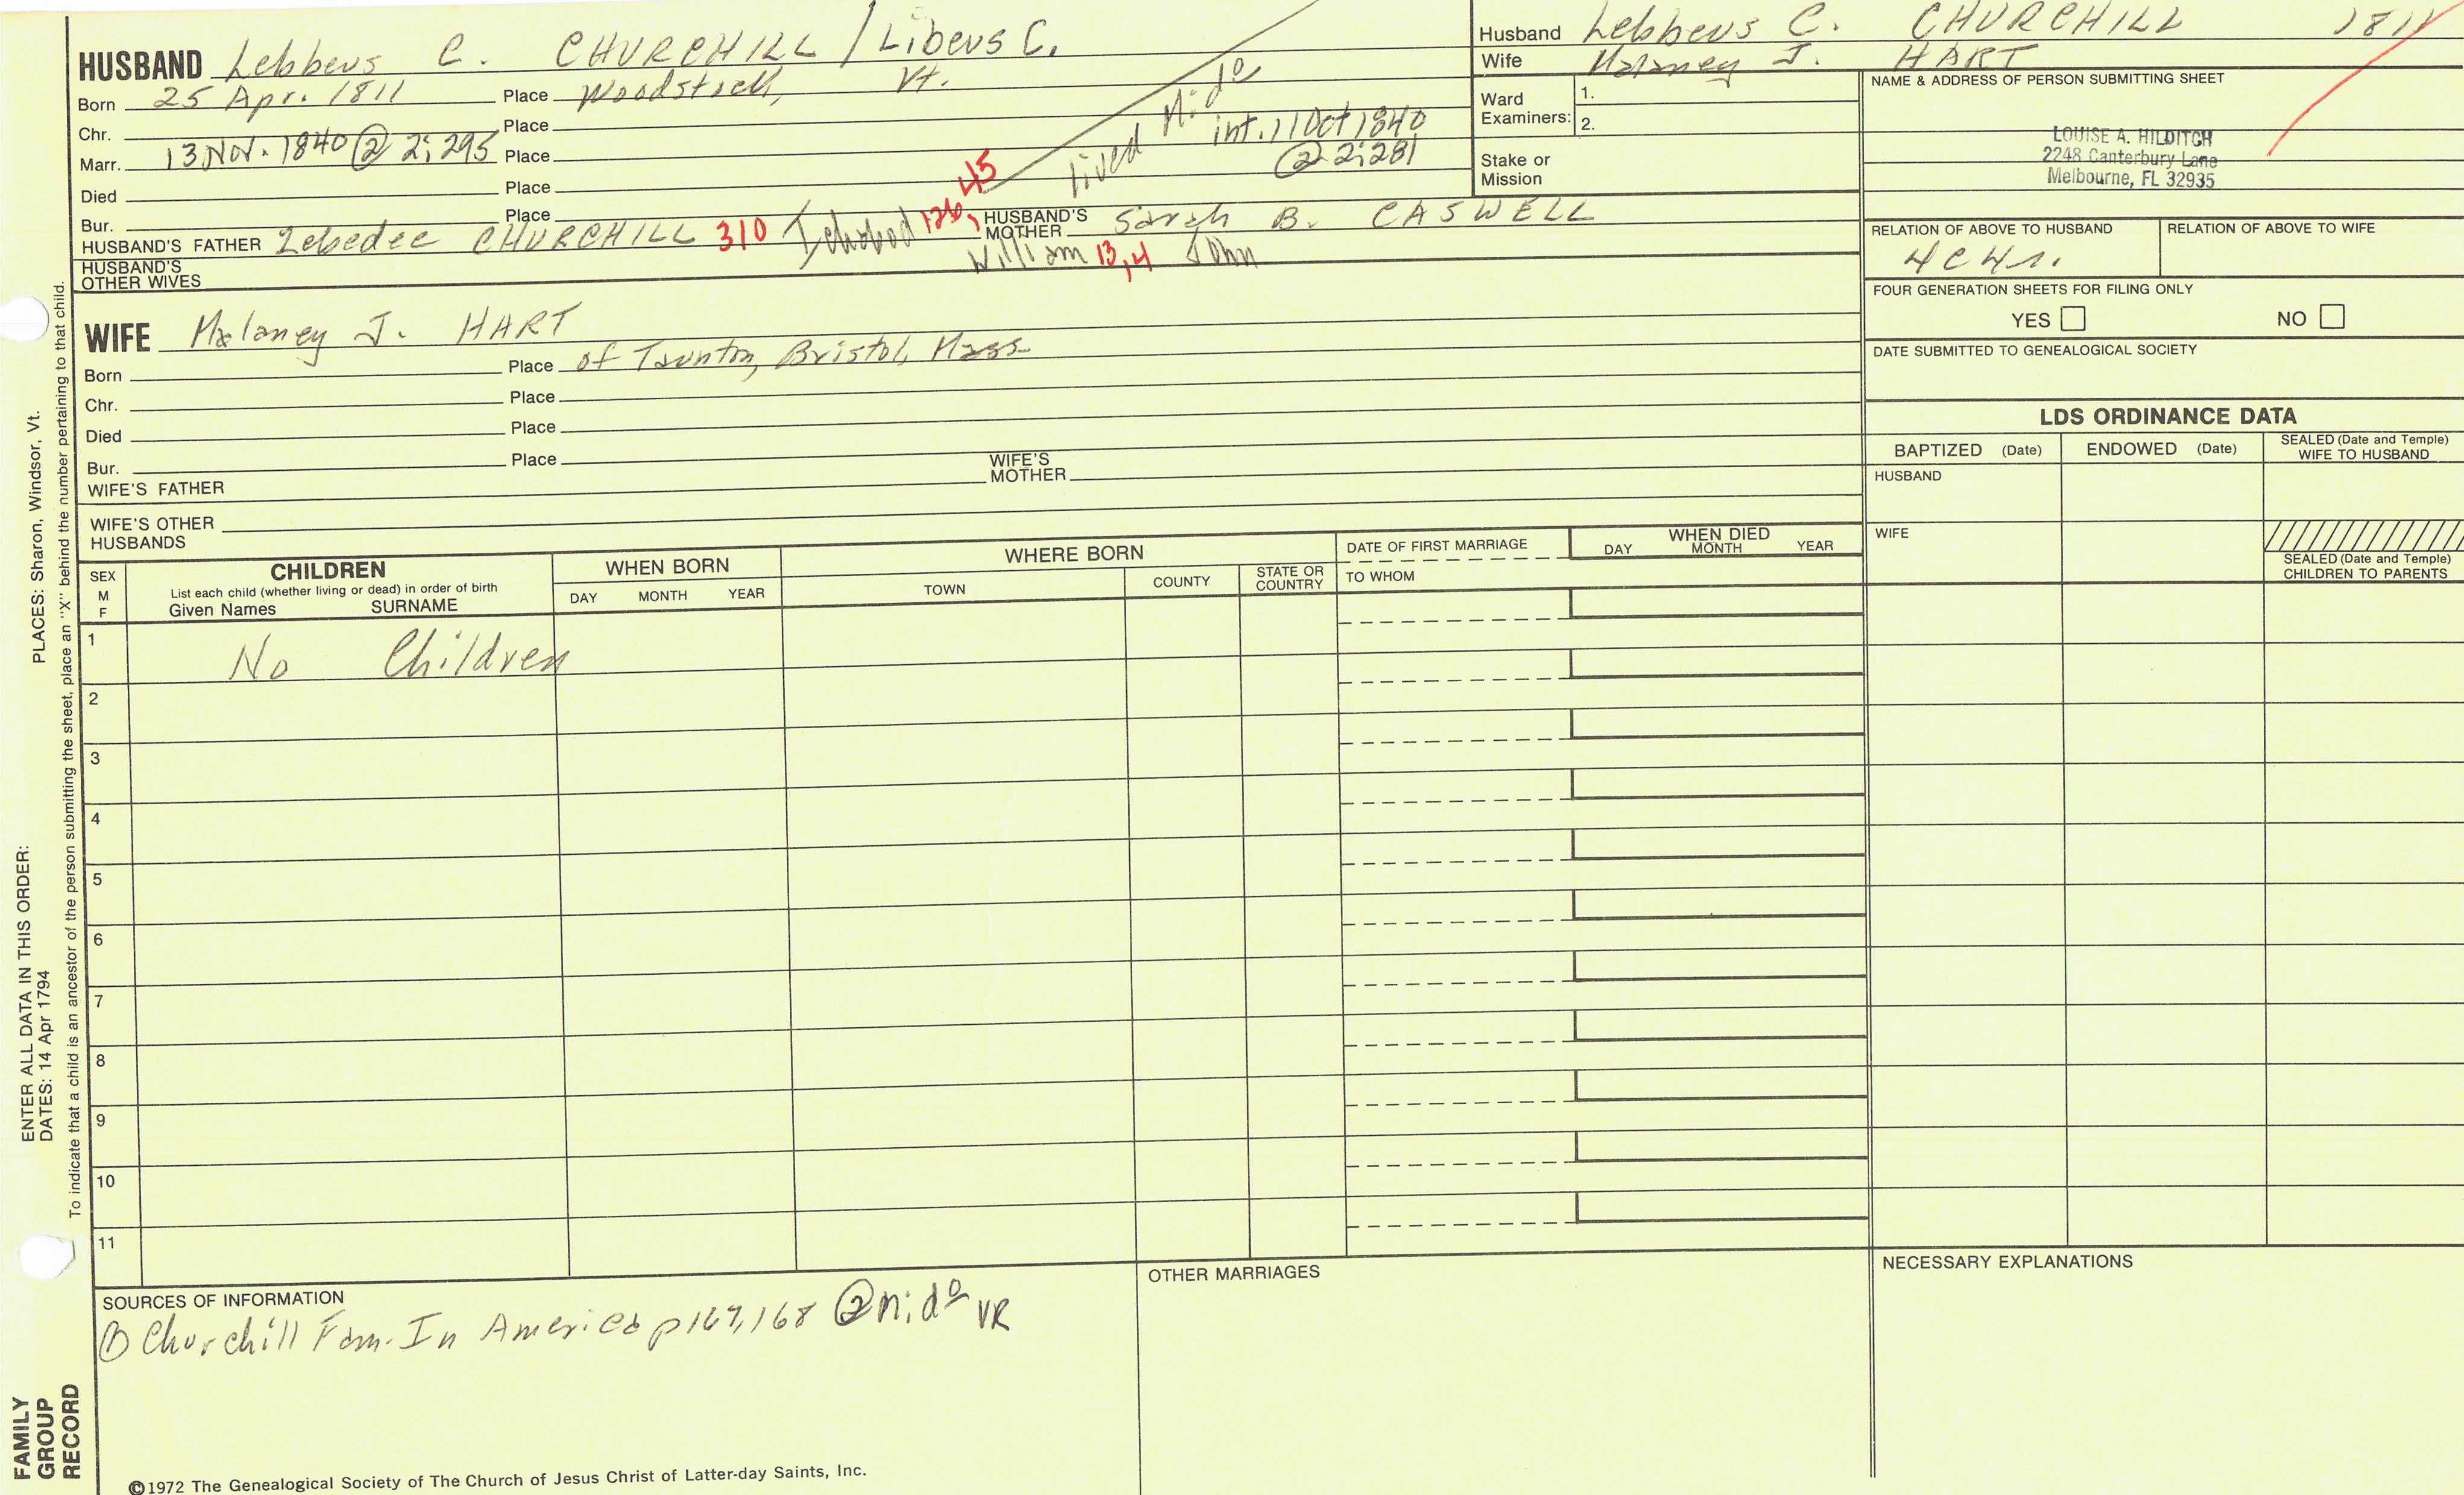 HUSBAND Lebbeus C. CHURCHILL / Libeus C.
Born 25 Apr. 1811 Place Woodstock, Vt.
Chr. Place
Marr. 13 Nov. 1840 @ 2; 295 Place
Died Place
Bur. Place
lived Mido
int. 11 Oct 1840
@ 2; 281
HUSBAND'S FATHER Zebedee CHURCHILL 310 Ichabod 126, 45 William 13, 4 John
HUSBAND'S MOTHER Sarah B. CASWELL
HUSBAND'S OTHER WIVES
WIFE Malaney J. HART
Born Place of Taunton, Bristol, Mass
Chr. Place
Died Place
Bur. Place
WIFE'S FATHER WIFE'S MOTHER
WIFE'S OTHER HUSBANDS
Husband Lebbeus C. CHURCHILL 1811
Wife Malaney J. HART
Ward Examiners: 1.
2.
Stake or Mission
NAME & ADDRESS OF PERSON SUBMITTING SHEET
LOUISE A. HILDITCH
2248 Canterbury Lane
Melbourne, FL 32935
RELATION OF ABOVE TO HUSBAND RELATION OF ABOVE TO WIFE
4c4r.
FOUR GENERATION SHEETS FOR FILING ONLY
YES NO
DATE SUBMITTED TO GENEALOGICAL SOCIETY
LDS ORDINANCE DATA
BAPTIZED (Date) ENDOWED (Date) SEALED (Date and Temple) WIFE TO HUSBAND
HUSBAND
WIFE
SEALED (Date and Temple) CHILDREN TO PARENTS
SEX M F
CHILDREN
List each child (whether living or dead) in order of birth
Given Names SURNAME
WHEN BORN
DAY MONTH YEAR
WHERE BORN
TOWN COUNTY STATE OR COUNTRY
DATE OF FIRST MARRIAGE
TO WHOM
WHEN DIED
DAY MONTH YEAR
1 No Children
2
3
4
5
6
7
8
9
10
11
SOURCES OF INFORMATION
① Churchill Fam. In America p167,168 ② Mido VR
OTHER MARRIAGES
NECESSARY EXPLANATIONS
©1972 The Genealogical Society of The Church of Jesus Christ of Latter-day Saints, Inc.
FAMILY GROUP RECORD
ENTER ALL DATA IN THIS ORDER:
DATES: 14 Apr 1794
PLACES: Sharon, Windsor, Vt.
To indicate that a child is an ancestor of the person submitting the sheet, place an "X" behind the number pertaining to that child.